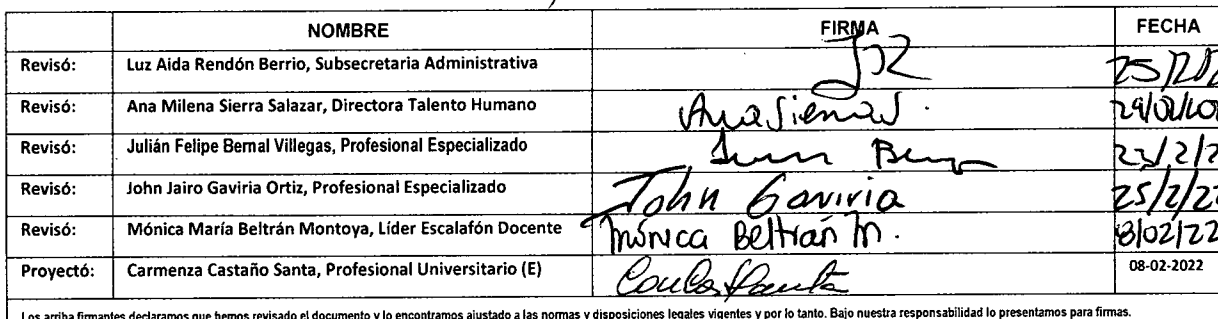 NOMBRE FIRMA FECHA
Revisó: Luz Aida Rendón Berrio, Subsecretaria Administrativa
Revisó: Ana Milena Sierra Salazar, Directora Talento Humano AnaSierraS.
Revisó: Julián Felipe Bernal Villegas, Profesional Especializado 23/2/2
Revisó: John Jairo Gaviria Ortiz, Profesional Especializado John Gaviria 25/2/22
Revisó: Mónica María Beltrán Montoya, Líder Escalafón Docente Mónica Beltrán M. 8/02/22
Proyectó: Carmenza Castaño Santa, Profesional Universitario (E) 08-02-2022
Los arriba firmantes declaramos que hemos revisado el documento y lo encontramos ajustado a las normas y disposiciones legales vigentes y por lo tanto. Bajo nuestra responsabilidad lo presentamos para firmas.